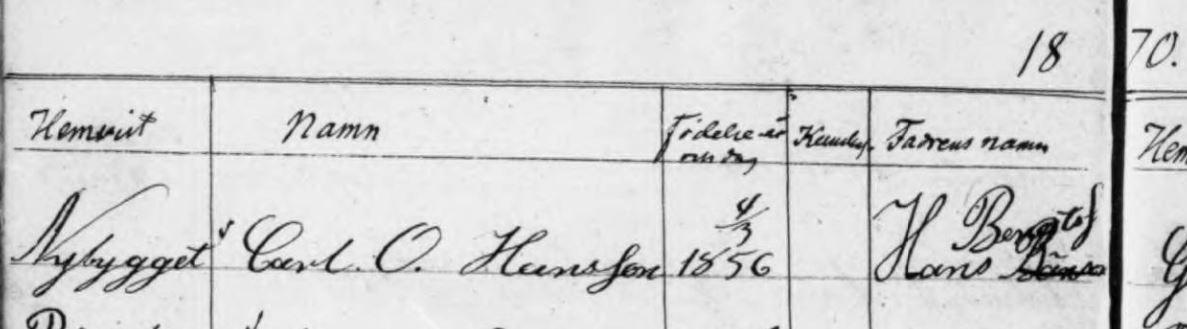 18 70.
Hemvist Namn Födelse-år Kunskap. Fadrens namn Hem
och dag
4/3 Bengtsf
Nybygget Carl. O. Hansson 1856 Hans